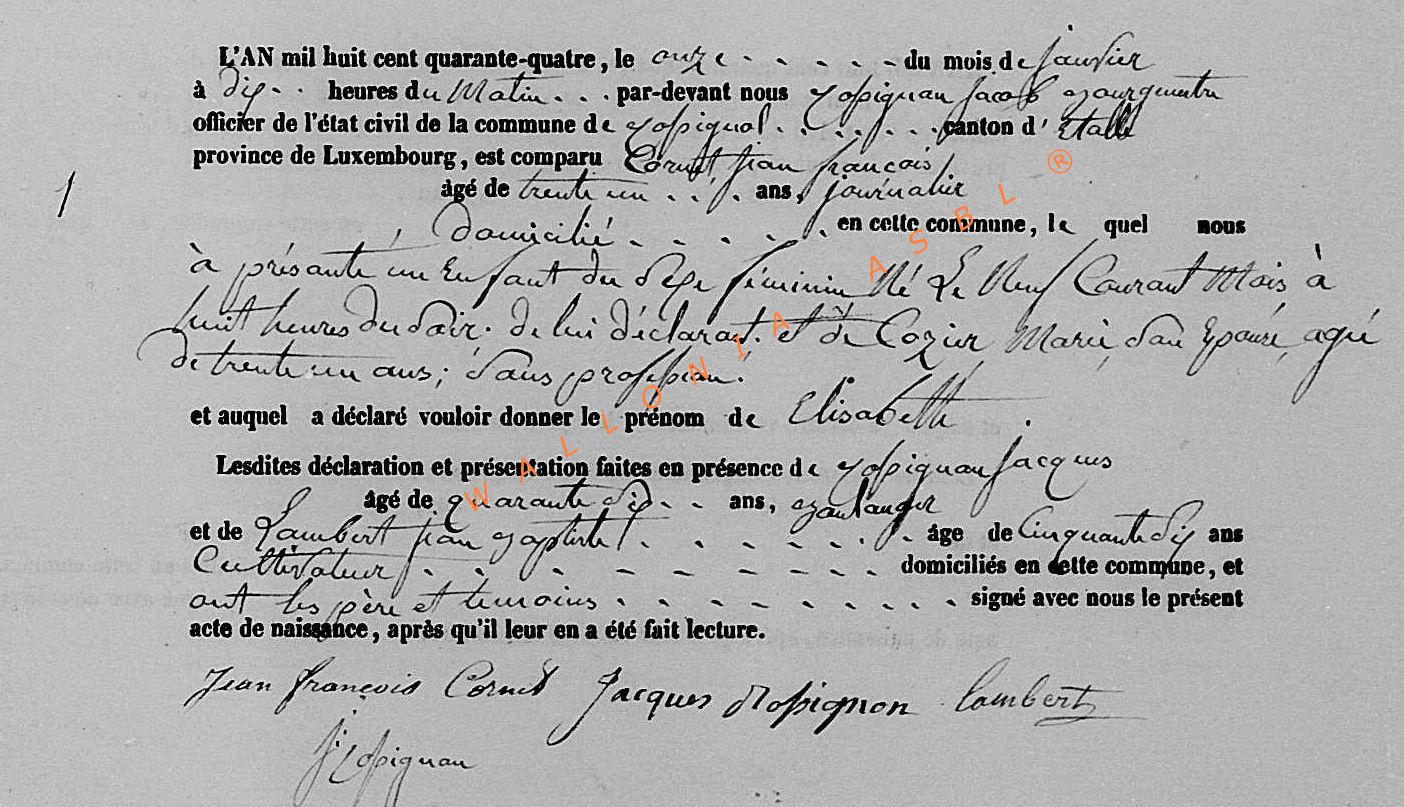 L'AN mil huit cent quarante-quatre, le onze - - - - - du mois de janvier
à dix - - heures du Matin - - - par-devant nous Rossignon Jacob Bourguemetre
officier de l'état civil de la commune de Rossignol - - - - - - canton d'Etalle
province de Luxembourg, est comparu Cornet jean françois
1
âgé de trente un - - - ans, journalier
, domicilié - - - - - en cette commune, le quel nous
à présanté un Enfant du Sexe féminin Né Le Neuf Courant Mois à
huit heures du Soir. de lui déclarant. et de Cozier Marie, Son Epouse, agée
de trente un ans; Sans profession.
et auquel a déclaré vouloir donner le prénom de Elisabeth .
Lesdites déclaration et présentation faites en présence de Rossignon Jacques
âgé de quarante dix - - ans, Boulanger
et de Lambert jean Baptiste - - - - - - - âge de Cinquante dix ans
Cultivateur - - - - - - - - - domiciliés en cette commune, et
ont les père et temoins - - - - - - - - - signé avec nous le présent
acte de naissance, après qu'il leur en a été fait lecture.
Jean françois Cornet Jacques Rossignon Lambert
J. Rossignon
WALLONIA ASBL ®